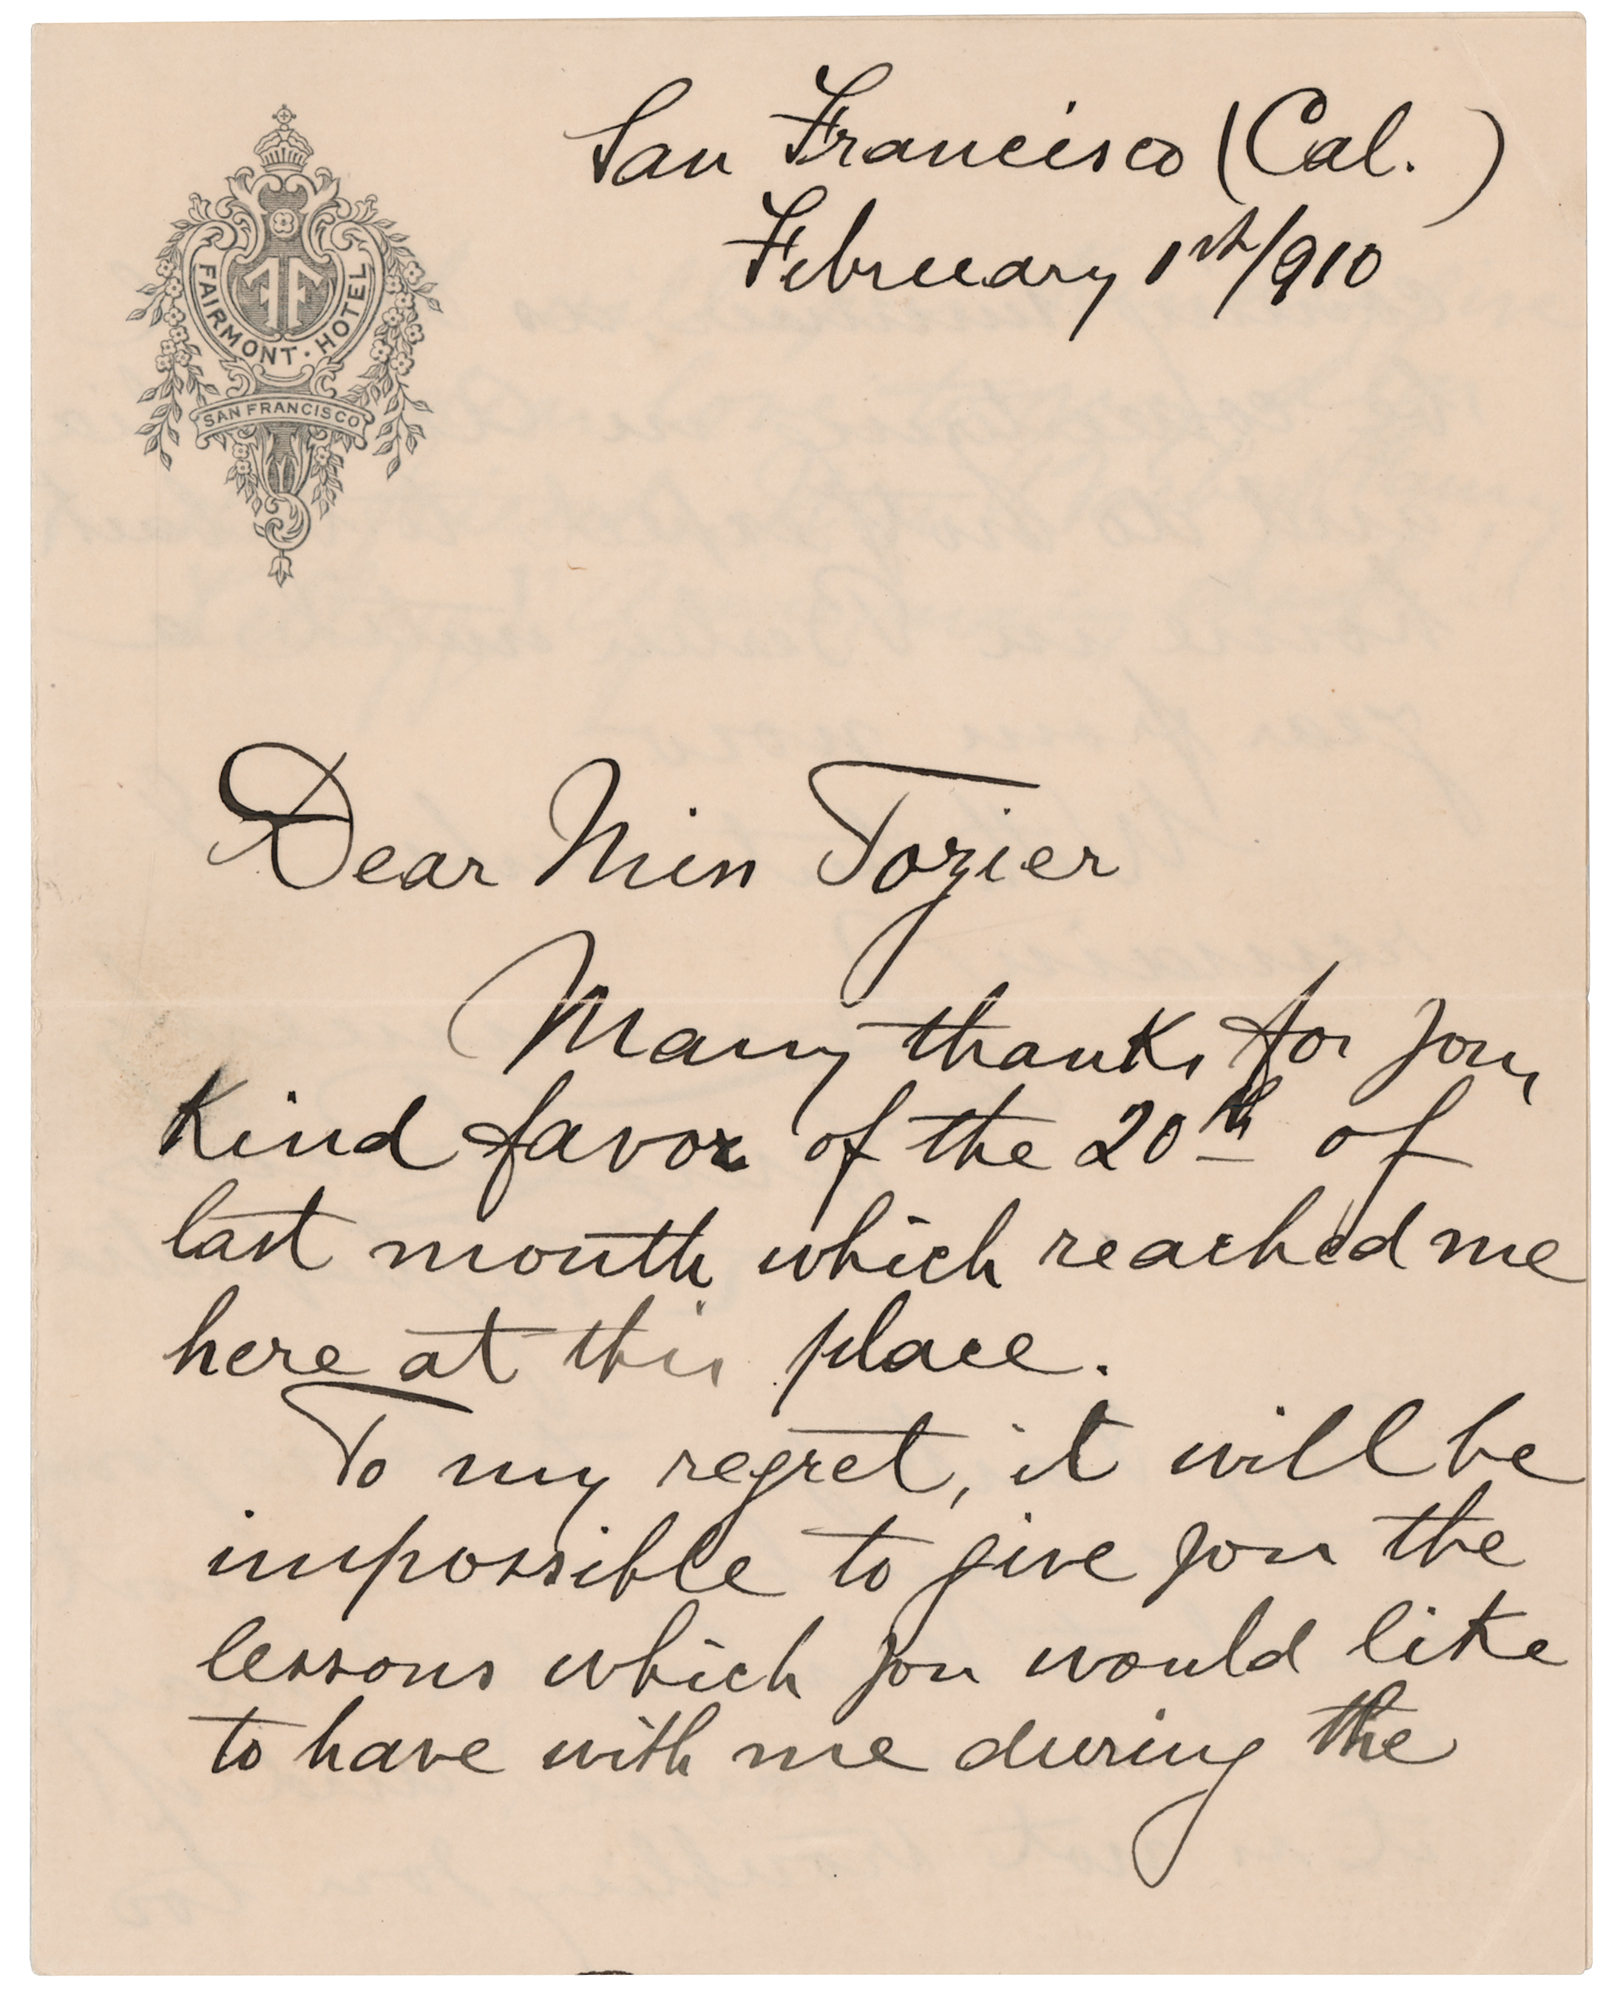 San Francisco (Cal.)
February 1st/910
FF
FAIRMONT · HOTEL
SAN FRANCISCO
Dear Miss Tozier
Many thanks for your
kind favor of the 20th of
last month which reached me
here at this place.
To my regret, it will be
impossible to give you the
lessons which you would like
to have with me during the